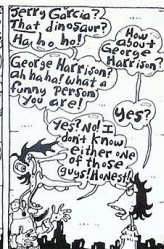 Jerry Garcia?
That dinosaur?
Ha, ho ho!
How
about
George
Harrison?
George Harrison?
ah haha! what a
funny person
you are!
Yes?
Yes? No! I
don't know
either one
of those
guys! Honest!